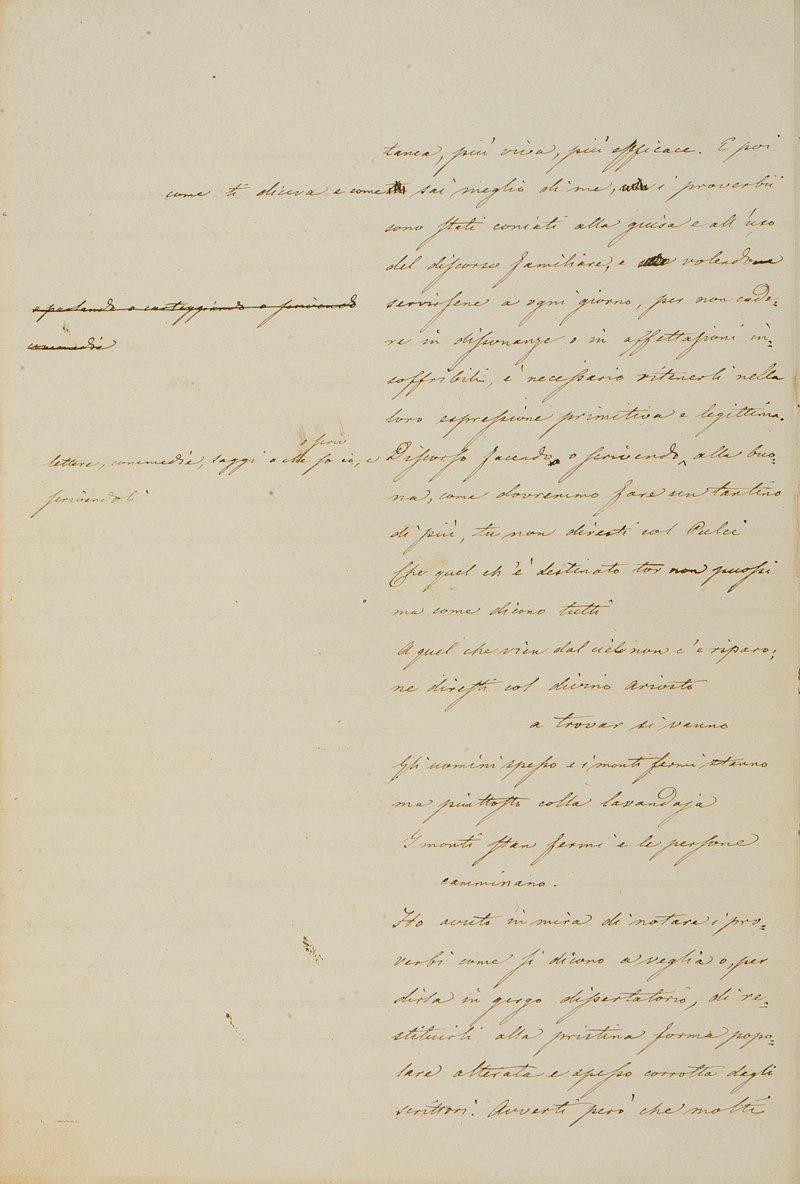 tanea, più viva, più efficace. E poi
come ti diceva e come sai meglio di me, i proverbii
sono stati coniati alla guisa e all'uso
del discorso familiare, e volendo
o parlando o carteggiando o scrivendo
commedie
servirsene a ogni giorno, per non cade=
re in dissonanze o in affettazioni in=
soffribili, è necessario ritenerli nella
loro espressione primitiva e legittima.
Discorso facendo o scrivendo alla buo=
lettere, commedie, saggi o che so io, e
scrivendoli
na, come dovremmo fare un tantino
di più, tu non diresti col Pulci
Che quel ch'è destinato tor non puossi
ma come dicono tutti
A quel che vien dal cielo non c'è riparo;
nè diresti col divino Ariosto
a trovar si vanno
Gli uomini spesso e i monti fermi stanno
ma piuttosto colla lavandaja
I monti stan fermi e le persone
camminano.
Ho avuto in mira di notare i pro=
verbi come si dicono a veglia o, per
dirla in gergo dissertatorio, di re=
stituirli alla pristina forma popo=
lare alterata e spesso corrotta dagli
scrittori. Avverti però che molti